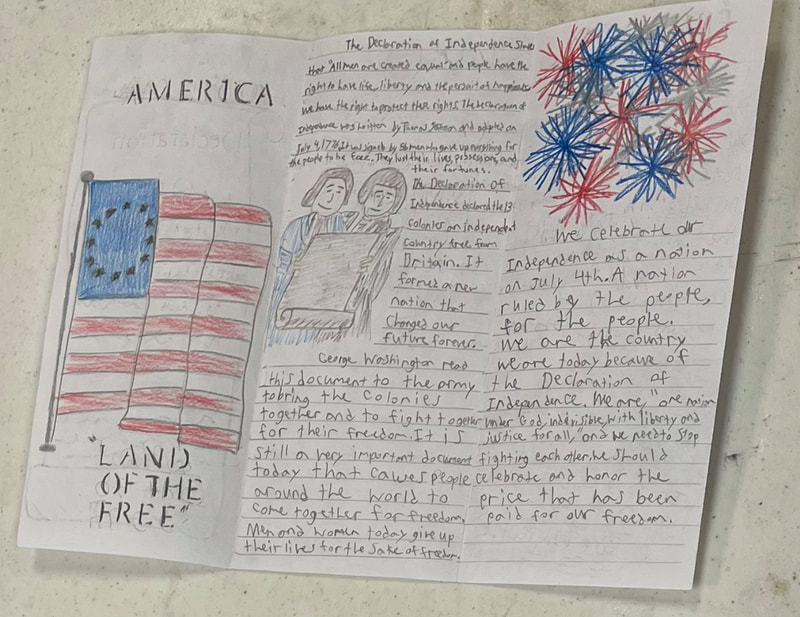 AMERICA
"LAND
OF THE
FREE"
The Declaration of Independence States
that "All men are created equal" and people have the
right to have life, liberty and the persuit of happiness
We have the right to protect these rights. The Declaration of
Independence was written by Thomas and adopted on
July 4, 1776. It was signed by 56 men who gave up everything for
the people to be free. They lost their lives, possessions, and
their fortunes.
The Declaration Of
Independence declared the 13
colonies an independent
country free from
Britain. It
formed a new
nation that
changed our
future forever.
George Washington read
this document to the army
to bring the Colonies
together and to fight together
for their freedom. It is
still a very important document
today that people
around the world to
come together for freedom.
Men and women today give up
their lives for the sake of freedom.
We celebrate our
Independence as a nation
on July 4th. A nation
ruled by the people,
for the people.
We are the country
we are today because of
the Declaration of
Independence. We are, "one nation
under God, indivisible, with liberty and
justice for all," and we need to stop
fighting each other. We should
celebrate and honor the
price that has been
paid for our freedom.